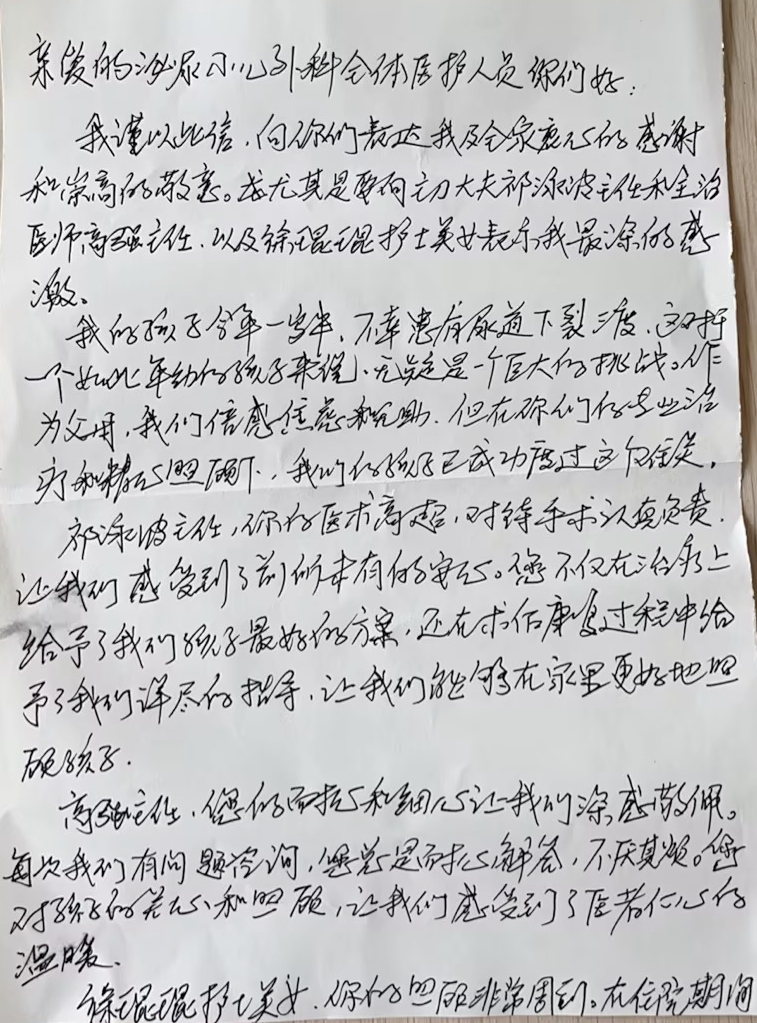 亲爱的泌尿小儿外科全体医护人员你们好:
我谨以此信,向你们表达我及全家衷心的感谢
和崇高的敬意。我尤其是要向主刀大夫祁泳波主任和主治
医师高强主任,以及徐琨琨护士美女表示我最深的感
激。
我的孩子今年一岁半,不幸患有尿道下裂三度,这对于
一个如此年幼的孩子来说,无疑是一个巨大的挑战。作
为父母,我们倍感焦虑和无助,但在你们的专业治
疗和精心照顾下,我们的孩子已成功度过这个难关。
祁泳波主任,你的医术高超,对待手术认真负责,
让我们感受到了前所未有的安心。您不仅在治疗上
给予了我们孩子最好的方案,还在术后康复过程中给
予了我们详尽的指导,让我们能够在家里更好地照
顾孩子。
高强主任,您的耐心和细心让我们深感敬佩。
每次我们有问题咨询,您总是耐心解答,不厌其烦。您
对孩子的关心和照顾,让我们感受到了医者仁心的
温暖。
徐琨琨护士美女,你的照顾非常周到。在住院期间